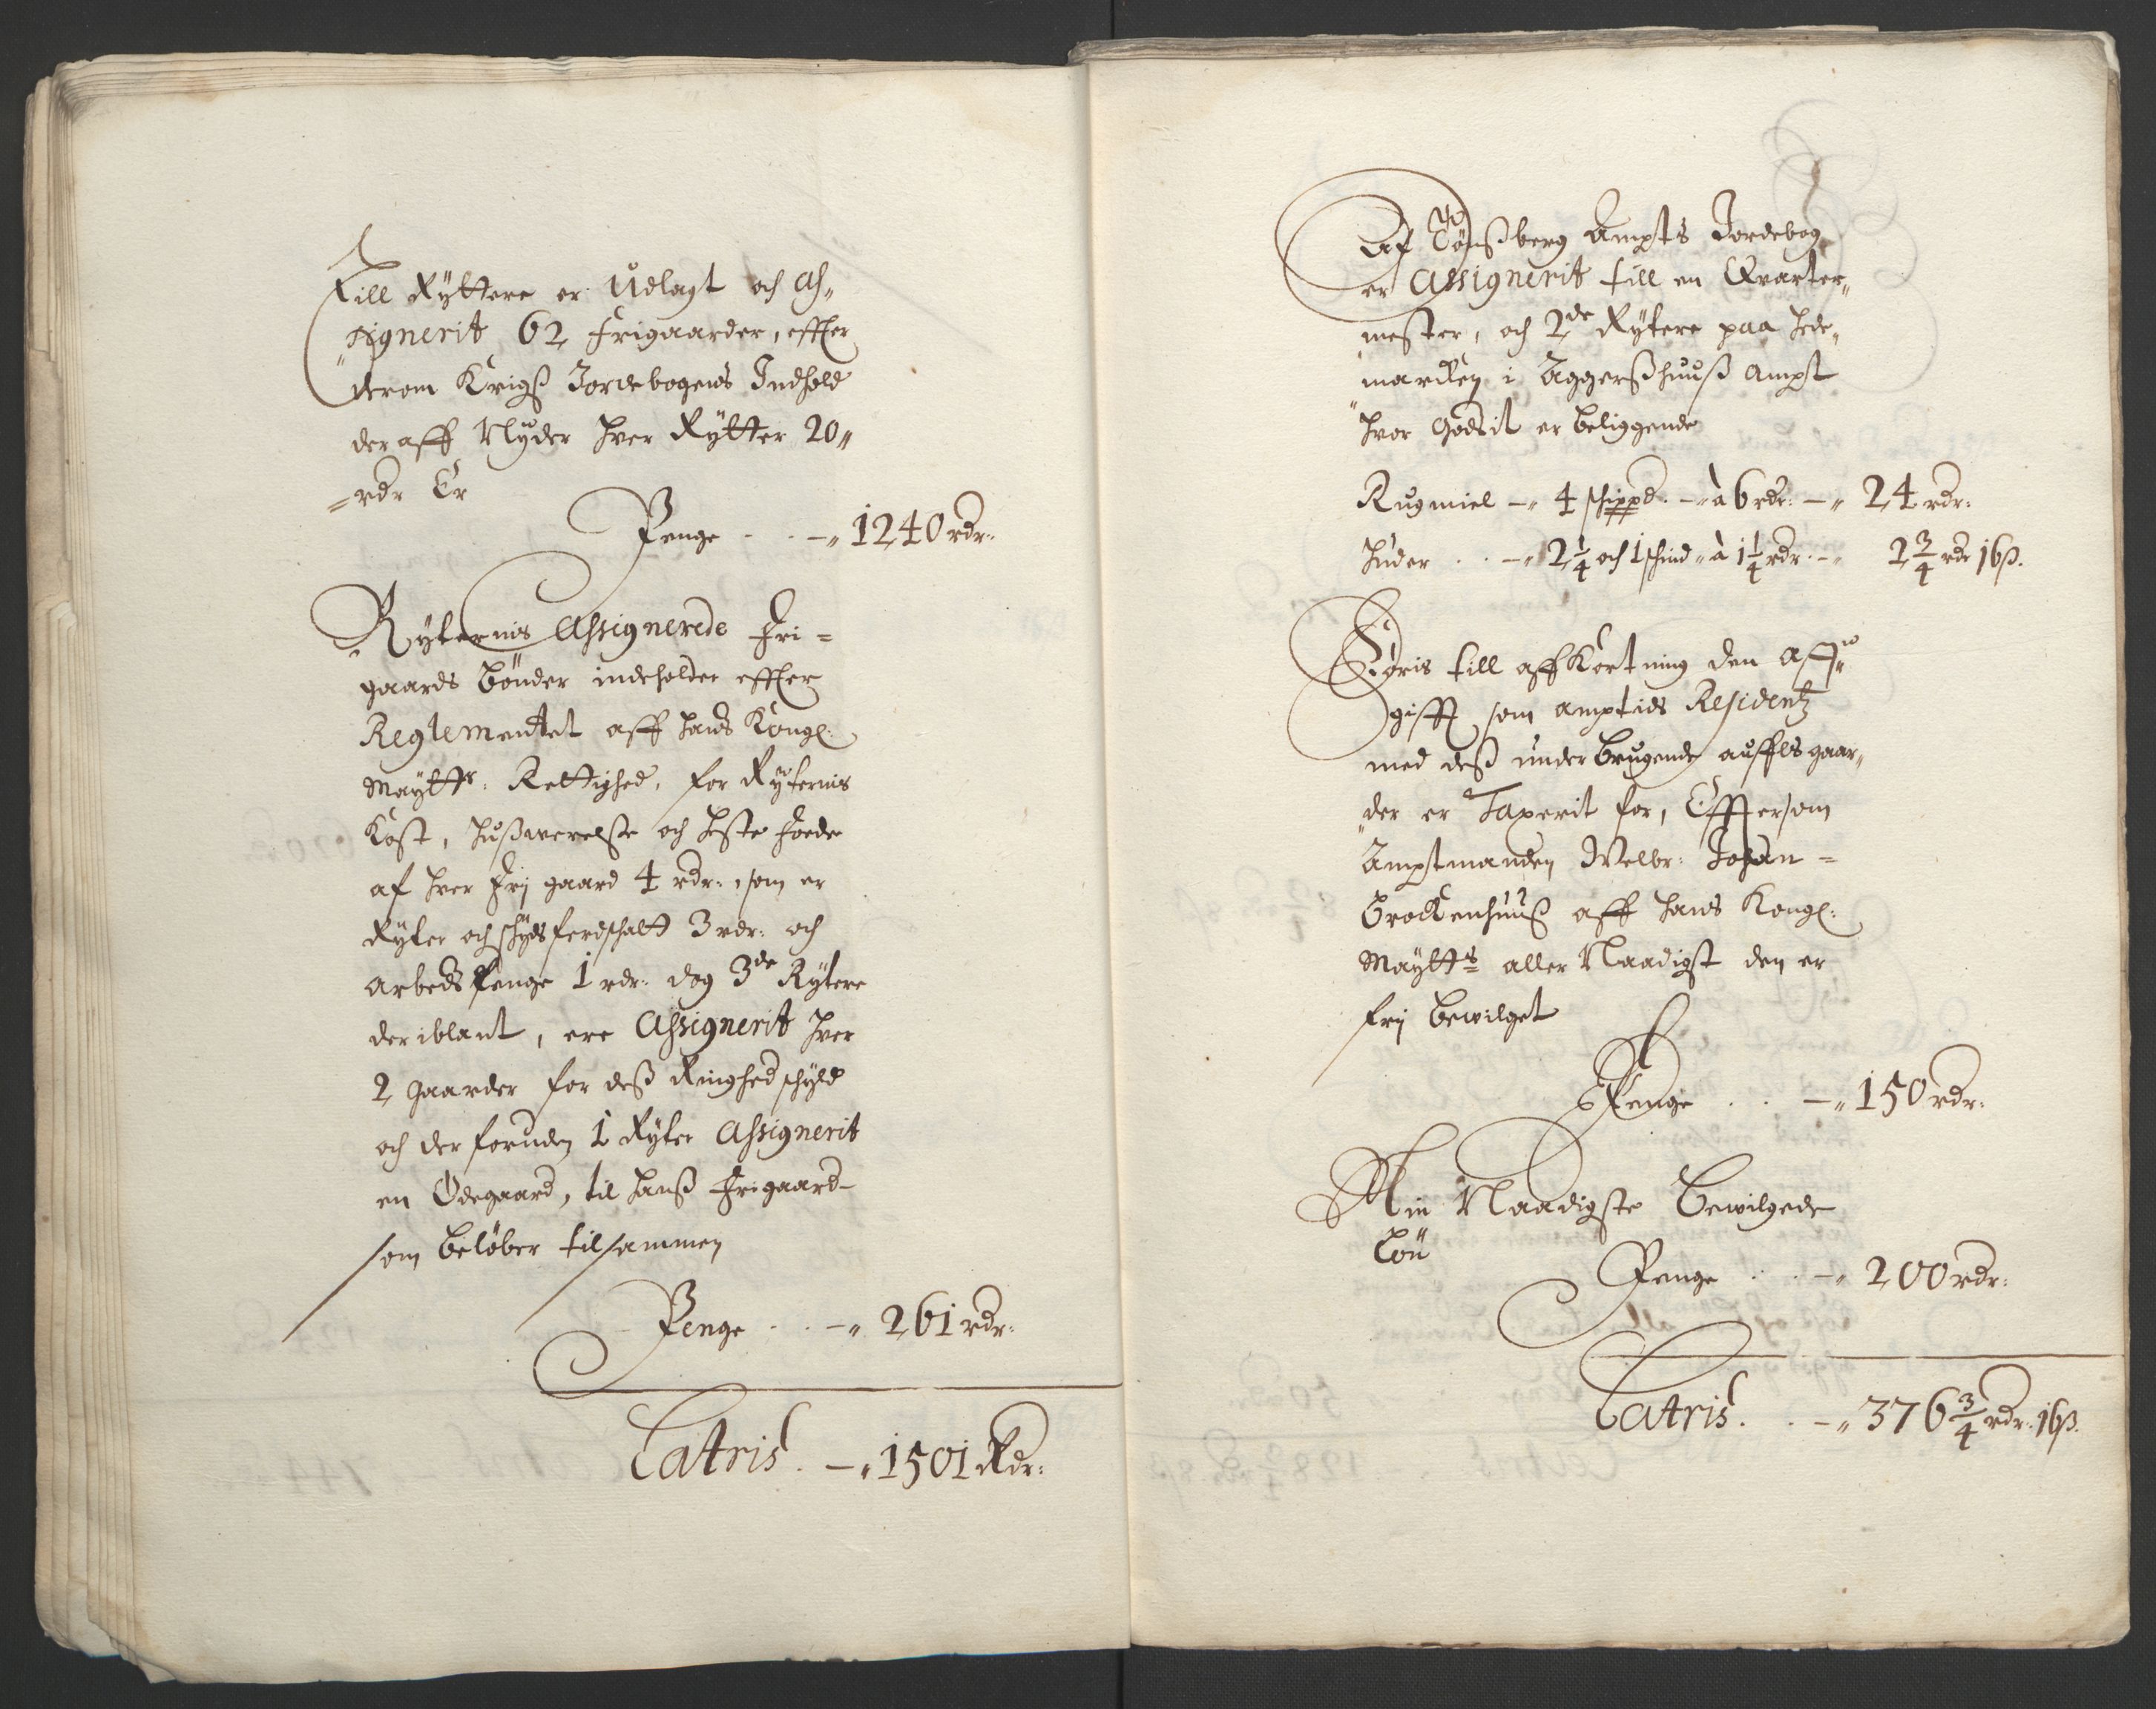 Till Rÿttere er Udlagt och As„
„signerit 62 Frigaarder, effter
derom Krigß Jordebogens Indhold
der aff Nÿder hver Rÿtter 20„
=rdr Er
Penge . . —„ 1240 rdr:
Rÿternis Assignerede Fri=
gaards Bönder indeholder effter
Reglementet aff hans Kongl:
Maÿtts: Rettighed, for Rÿternis
Kost, Hußwerelße och Heste Foeder
af hver Frij gaard 4 rdr: , som er
Rÿter och schÿds ferdschatt 3 rdr: och
Arbeds Penge 1 rdr: dog 3de Rÿtere
der iblant, ere Assignerit hver
2 gaarder for deß Ringhed schÿld
och der foruden 1 Rÿter Assignerit
en Ödegaard, til hanß Frigaard
som belöber tilsammen
Penge . . —„ 261 rdr:
Latris . —„ 1501 Rdr:
Af Tönßberg Ampts Jordebog
er Assignerit till en Qvarter„
mester, och 2de Rÿtere paa Hede„
„marcken i Aggerßhuuß Ampt
„hvor Godsit er beliggende
Rugmiel —„ 4 schippd. —„ à 6 rdr: —„ 24 rdr:
Huder . . —„ 2 1/4 och 1 schind „ à 1 1/4 rdr. —„ 2 3/4 rdr 16 ß.
Föris till aff Kortning den Aff„
gifft som amptids Residentz
med deß underbrugende aufflsgaar„
„der er Taxerit for, Efftersom
Amptmanden Welbr: Johan =
Brockenhuuß aff hans Kongl:
Maÿtts aller Naadigst den er
frij bewilget
Penge . . —„ 150 rdr:
Min Naadigste Bewilgede
Lön
Penge . . —„ 200 rdr:
Latris . . —„ 376 3/4 rdr: 16 ß.